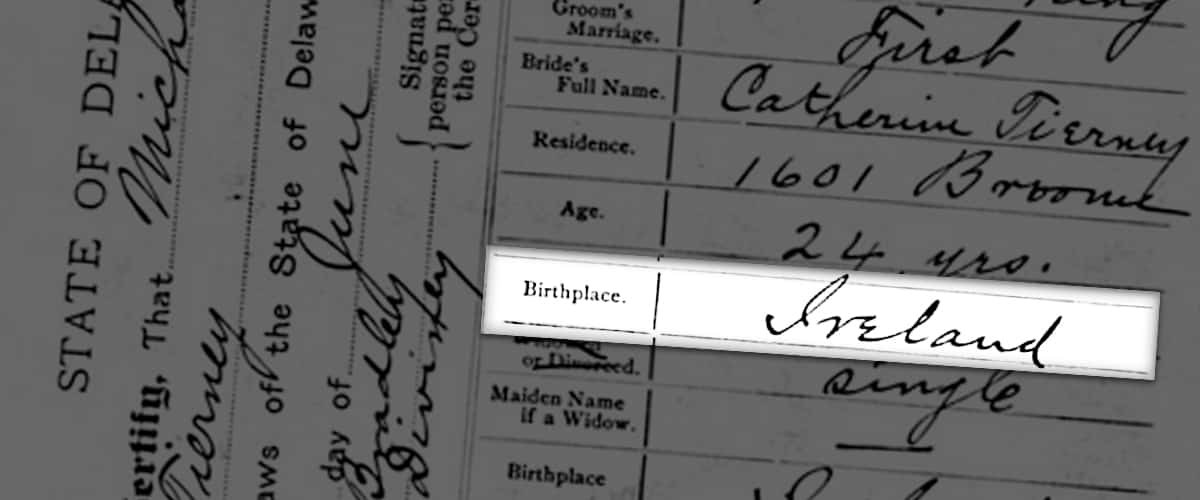 STATE OF DELA
ertify, That Micha
Tierney
aws of the State of Delaw
day of June
Bradley
Diviskey
Signatu
person pe
the Cer
Groom's
Marriage. First
Bride's
Full Name. Catherine Tierney
Residence. 1601 Broome
Age. 24 yrs.
Birthplace. Ireland
or Divorced. single
Maiden Name
if a Widow. —
Birthplace